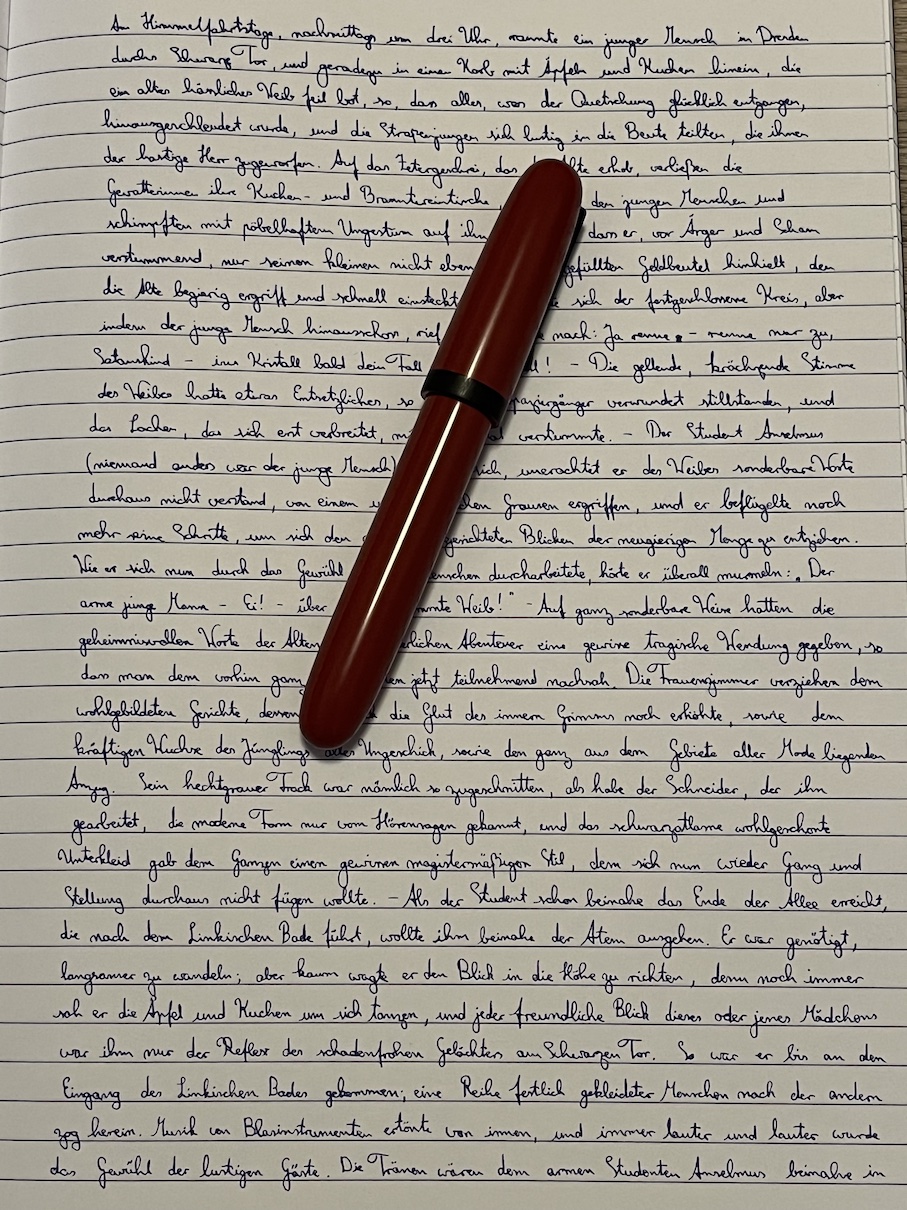 Am Himmelfahrtstage, nachmittags um drei Uhr, rannte ein junger Mensch in Dresden
durchs Schwarze Tor, und geradezu in einen Korb mit Äpfeln und Kuchen hinein, die
ein altes hässliches Weib feil bot, so, dass alles, was der Quetschung glücklich entgangen,
hinausgeschleudert wurde, und die Straßenjungen sich lustig in die Beute teilten, die ihnen
der hastige Herr zugeworfen. Auf das Zetergeschrei, das die Alte erhob, verließen die
Gevatterinnen ihre Kuchen- und Branntweintische, den jungen Menschen und
schimpften mit pöbelhaftem Ungestüm auf ihn dass er, vor Ärger und Scham
verstummend, nur seinen kleinen nicht eben gefüllten Geldbeutel hinhielt, den
die Alte begierig ergriff und schnell einsteckte sich der festgeschlossene Kreis, aber
indem der junge Mensch hinausschoss, rief nach: Ja renne - renne nur zu,
Satanskind - ins Kristall bald dein Fall ! - Die gellende, krächzende Stimme
des Weibes hatte etwas Entsetzliches, so paziergänger verwundert stillstanden, und
das Lachen, das sich erst verbreitet, mi al verstummte. - Der Student Anselmus
(niemand anders war der junge Mensch) sich, unerachtet er des Weibes sonderbare Worte
durchaus nicht verstand, von einem u chen Grausen ergriffen, und er beflügelte noch
mehr seine Schritte, um sich den gerichteten Blicken der neugierigen Menge zu entziehen.
Wie er sich nun durch das Gewühl enschen durcharbeitete, hörte er überall murmeln: „Der
arme junge Mann - Ei! - über mmte Weib!" - Auf ganz sonderbare Weise hatten die
geheimnisvollen Worte der Alten erlichen Abenteuer eine gewisse tragische Wendung gegeben, so
dass man dem vorhin ganz en jetzt teilnehmend nachsah. Die Frauenzimmer verziehen dem
wohlgebildeten Gesichte, dessen die Glut des innern Grimms noch erhöhte, sowie dem
kräftigen Wuchse des Jünglings alles Ungeschick, sowie den ganz aus dem Gebiete aller Mode liegenden
Anzug. Sein hechtgrauer Frack war nämlich so zugeschnitten, als habe der Schneider, der ihn
gearbeitet, die moderne Form nur vom Hörensagen gekannt, und das schwarzatlasne wohlgeschonte
Unterkleid gab dem Ganzen einen gewissen magistermäßigen Stil, dem sich nun wieder Gang und
Stellung durchaus nicht fügen wollte. - Als der Student schon beinahe das Ende der Allee erreicht,
die nach dem Linkischen Bade führt, wollte ihm beinahe der Atem ausgehen. Er war genötigt,
langsamer zu wandeln; aber kaum wagte er den Blick in die Höhe zu richten, denn noch immer
sah er die Äpfel und Kuchen um sich tanzen, und jeder freundliche Blick dieses oder jenes Mädchens
war ihm nur der Reflex des schadenfrohen Gelächters am Schwarzen Tor. So war er bis an den
Eingang des Linkischen Bades gekommen; eine Reihe festlich gekleideter Menschen nach der andern
zog herein. Musik von Blasinstrumenten ertönte von innen, und immer lauter und lauter wurde
das Gewühl der lustigen Gäste. Die Tränen wären dem armen Studenten Anselmus beinahe in